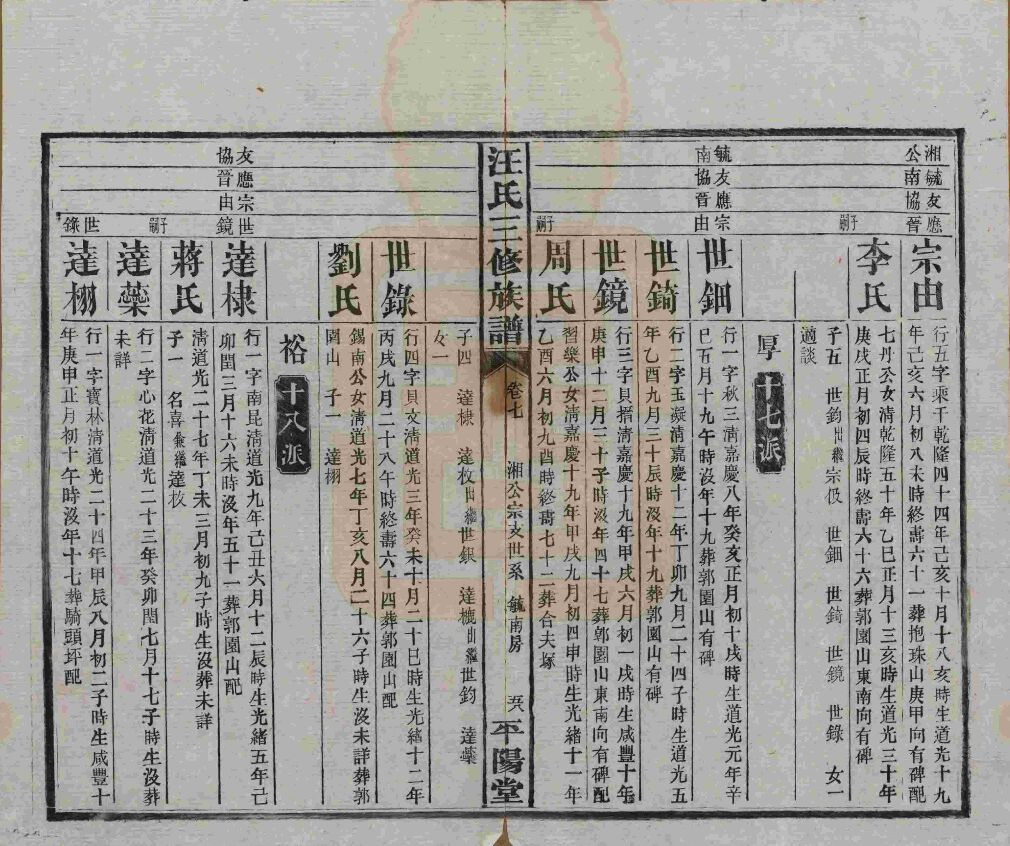 湘毓友應
公南協晉
宗由
行五字乘千乾隆四十四年己亥十月十八亥時生道光十九
年己亥六月初八未時終壽六十一葬抱珠山庚甲向有碑配
子嗣
李氏
七丹公女清乾隆五十年乙巳正月十三亥時生道光三十年
庚戌正月初四辰時終壽六十六葬郭園山東南向有碑
子五 世鈞出繼宗伋 世鈿 世錡 世鏡 世錄 女一
適談
厚 十七派
毓友應宗
南協晉由
世鈿
行一字秋三清嘉慶八年癸亥正月初十戌時生道光元年辛
巳五月十九午時沒年十九葬郭園山有碑
世錡
行二字玉凝清嘉慶十二年丁卯九月二十四子時生道光五
年乙酉九月三十辰時沒年十九葬郭園山有碑
世鏡
行三字貝搢清嘉慶十九年甲戌六月初一戌時生咸豐十年
庚申十二月二十子時沒年四十七葬郭園山東南向有碑配
子嗣
周氏
習樂公女清嘉慶十九年甲戌九月初四申時生光緒十一年
乙酉六月初九酉時終壽七十二葬合夫塚
汪氏三修族譜
卷七
湘公宗支世系 毓南房
平陽堂
子四 達棣 達枚出繼世銀 達櫆出繼世鈞 達蘂
女一
世錄
行四字貝文清道光三年癸未十月二十巳時生光緒十二年
丙戌九月二十八午時終壽六十四葬郭園山配
劉氏
錫南公女清道光七年丁亥八月二十六子時生沒未詳葬郭
園山 子一 達栩
裕 十八派
友應宗世
協晉由鏡
達棣
行一字南昆清道光九年己丑六月十二辰時生光緒五年己
卯閏三月十六未時沒年五十一葬郭園山配
子嗣
蔣氏
清道光二十七年丁未三月初九子時生沒葬未詳
子一 名喜兼繼達枚
達蘂
行二字心花清道光二十三年癸卯閏七月十七子時生沒葬
未詳
世錄
達栩
行一字寶林清道光二十四年甲辰八月初二子時生咸豐十
年庚申正月初十午時沒年十七葬騎頭坪配